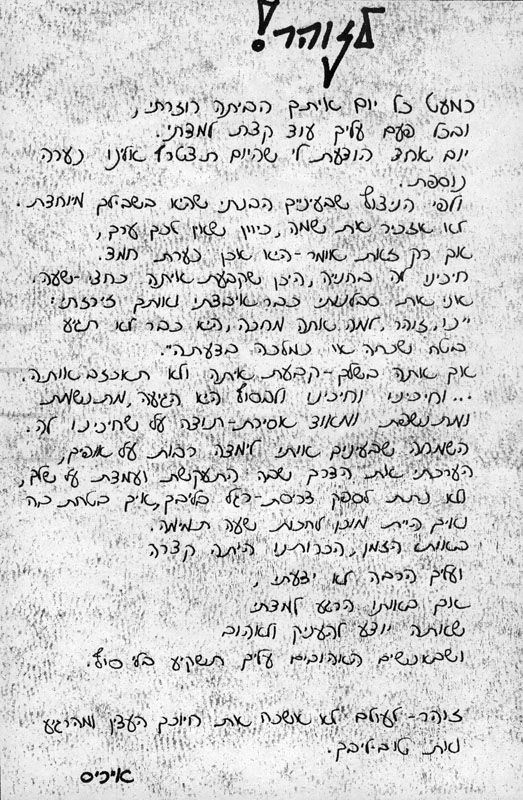 לזוהר!
כמעט כל יום איתך הביתה חוזרתי,
ובכל פעם עליך עוד קצת למדתי.
יום אחד הודעת לי שהיום תצטרף אלינו נערה
נוספת.
ולפי הניצוץ שבעיניים הבנתי שהיא בשבילך מיוחדת.
לא אזכיר את שמה, כיוון שאין לכם ערך,
אך רק זאת אומר-היא אכן נערת חמד.
חיכינו לה בחניה, היכן שקבעת איתה כחצי-שעה.
אני את סבלנותי כבר איבדתי ואותך זירזתי:
"נו, זוהר, למה אתה מחכה, היא כבר לא תגיע
בטח שכחה או נמלכה בדעתה".
אך אתה בשלך-קבעת איתה ולא תאכזב אותה.
...וחיכינו וחיכינו ולבסוף היא הגיעה, מתנשמת
ומתנשפת ומאוד אסירת-תודה על שחיכינו לה.
השמחה שבעינים אותי לימדה רבות על אופיך,
הערכתי את הדרך שבה התעקשת ועמדת על שלך,
ולא נתת לספק דריסת-רגל בליבך, איך בטחת בה
ואיך היית מוכן לחכות שעה תמימה.
באותו הזמן, הכרותנו היתה קצרה
ועליך הרבה לא ידעתי,
אך באותו הרגע למדתי
שאתה יודע להעניק ולאהוב
ושבאנשים האהובים עליך תשקיע בלי סוף.
זוהר-לעולם לא אשכח את חיוכך העדין ומהרגיע
ואת טוב-ליבך.
איריס